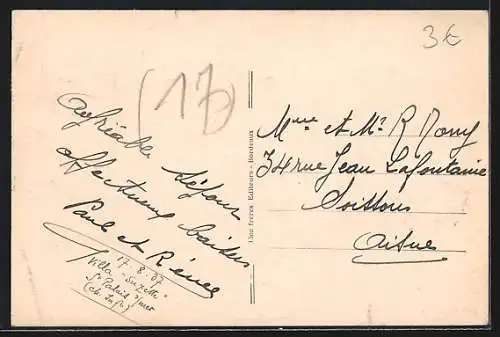 3€
(17)
Agréable séjour
affectueux baisers
Paule et Renée
17-8-37
Villa "Suzette"
St Palais s/mer
(ch. Infre)
Une frères Editeurs - Bordeaux
Mme et Mr R Dony
34 rue Jean Lafontaine
Soissons
Aisne